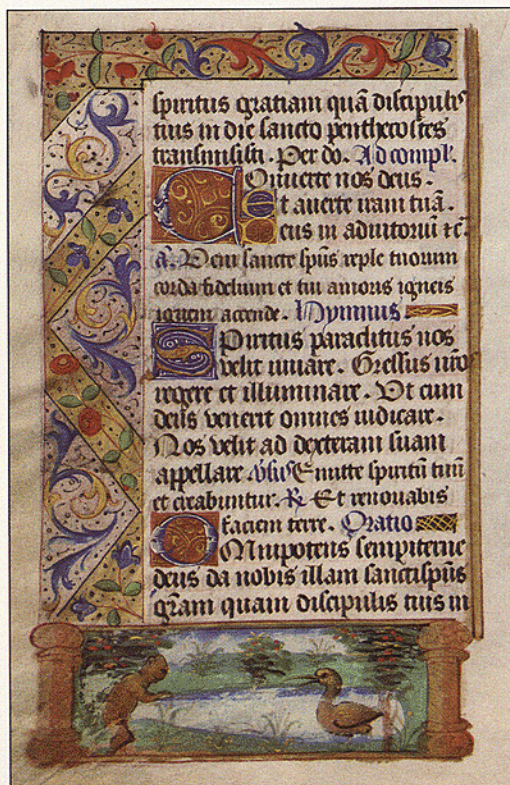 spiritus gratiam quā discipulis
tuis in die sancto penthecostes
transmisisti. Per do. Ad comple.
Conuerte nos deus.
Et auerte iram tuā.
Deus in adiutoriū ⁊c̄.
a. Veni sancte spūs reple tuorum
corda fidelium et tui amoris igneis
ignem accende. Hymnus
Spiritus paraclitus nos
velit iuuare. Gressus nr̄o
regere et illuminare. Vt cum
deus venerit omnes iudicare.
Nos velit ad dexteram suam
appellare. v̄sus Emitte spiritū tuū
et creabuntur. R Et renouabis
faciem terre. Oratio
Omnipotens sempiterne
deus da nobis illam sanctispūs
gr̄am quam discipulis tuis in